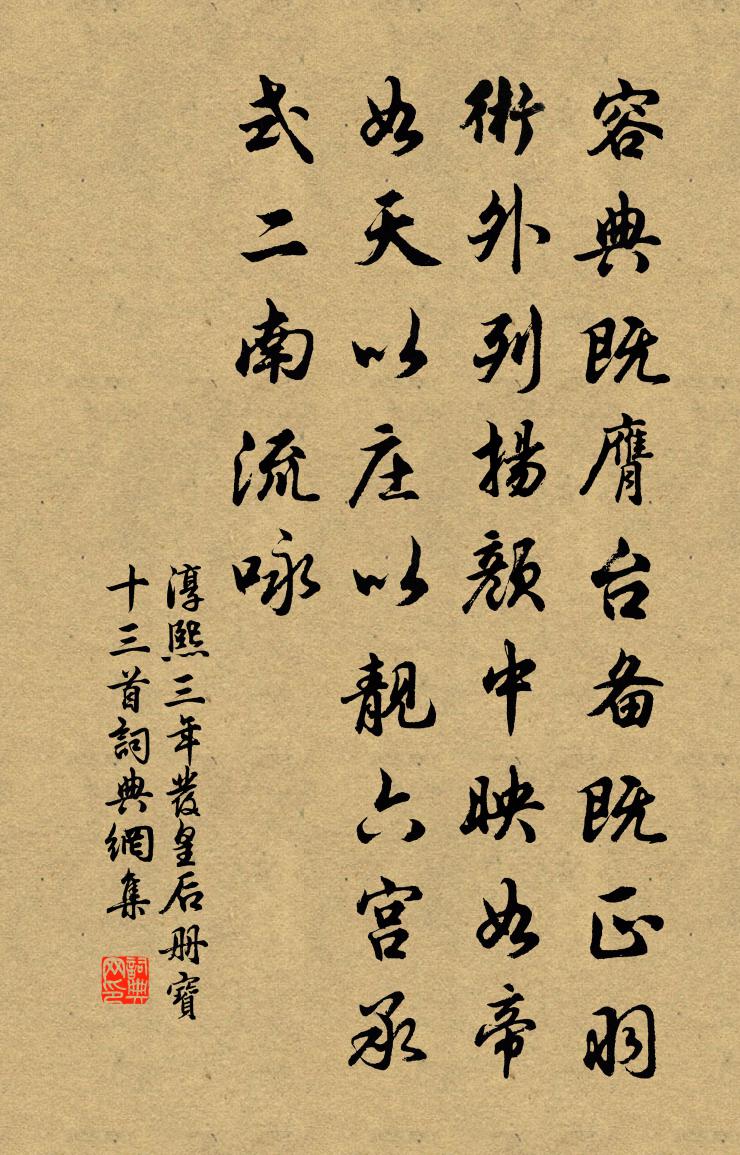 容典既膺台备既正羽
術外列揚顔中映如帝
如天以庄以靓六宫承
式二南流咏
淳熙三年發皇后册寶
十三首詞典網集
詞典
网印